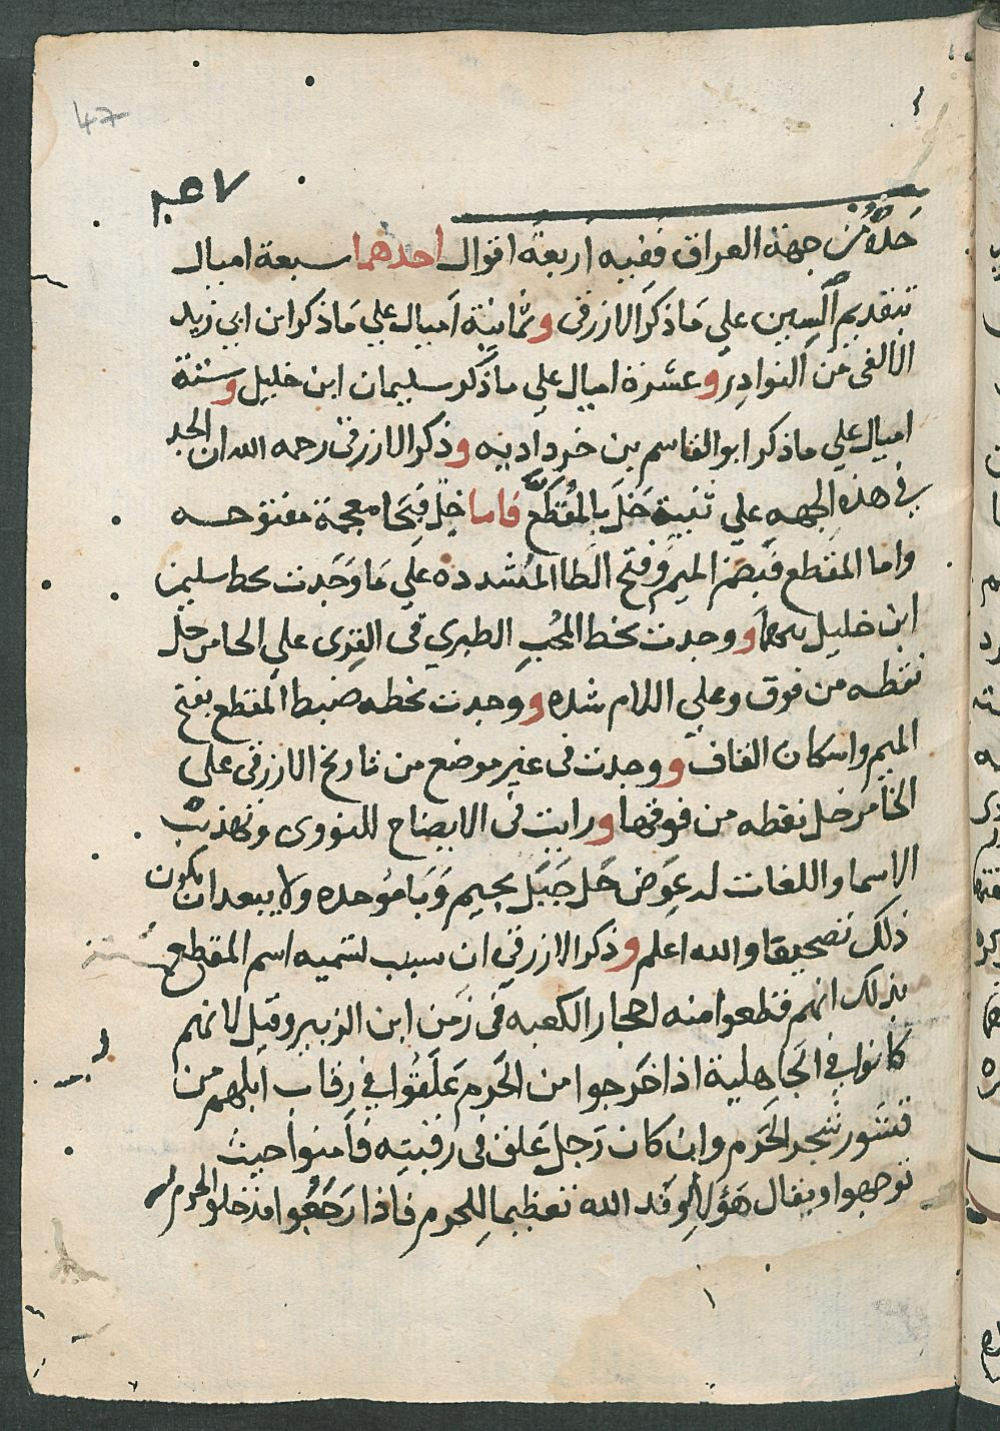 47
حده من جهة العراق ففيه اربعة اقوال احدهما سبعة اميال
بتقديم السين علي ما ذكر الازرقى وثمانية اميال علي ما ذكر ابن ابي زيد
الالفى من النوادر وعشرة اميال علي ما ذكر سليمان ابن خليل وستة
اميال علي ما ذكر ابو القاسم بن خرداد به وذكر الازرقى رحمه الله ان الحد
في هذه الجهه علي ثنية خل بالمقطع فاما خل فبخا معجمة مفتوحه
واما المقطع فبضم الميم وفتح الطا المشدده علي ما وجدت بخط سليمن
ابن خليل ووجدت بخط المحب الطبري فى القرى علي الحا من خل
نقطه من فوق وعلي اللام شده ووجدت بخطه ضبط المقطع بفتح
الميم واسكان القاف ووجدت فى غير موضع من تاريخ الازرقى على
الخا من خل نقطه من فوقها ورايت فى الايضاح للنووى وتهذيب
الاسما واللغات له عوض خل جبل بجيم وبا موحده ولا يبعد ان يكون
ذلك تصحيفا والله اعلم وذكر الازرقى ان سبب تسميه اسم المقطع
بذلك انهم قطعوا منه احجار الكعبه فى زمن ابن الزبير وقيل لانهم
كانوا في الجاهلية اذا خرجوا من الحرم علقوا في رقاب ابلهم من
قشور شجر الحرم وان كان رجل علق فى رقبته فامنوا حيث
توجهوا ويقال هؤلا وفد الله تعظيما للحرم فاذا رجعوا ودخلوا الحرم